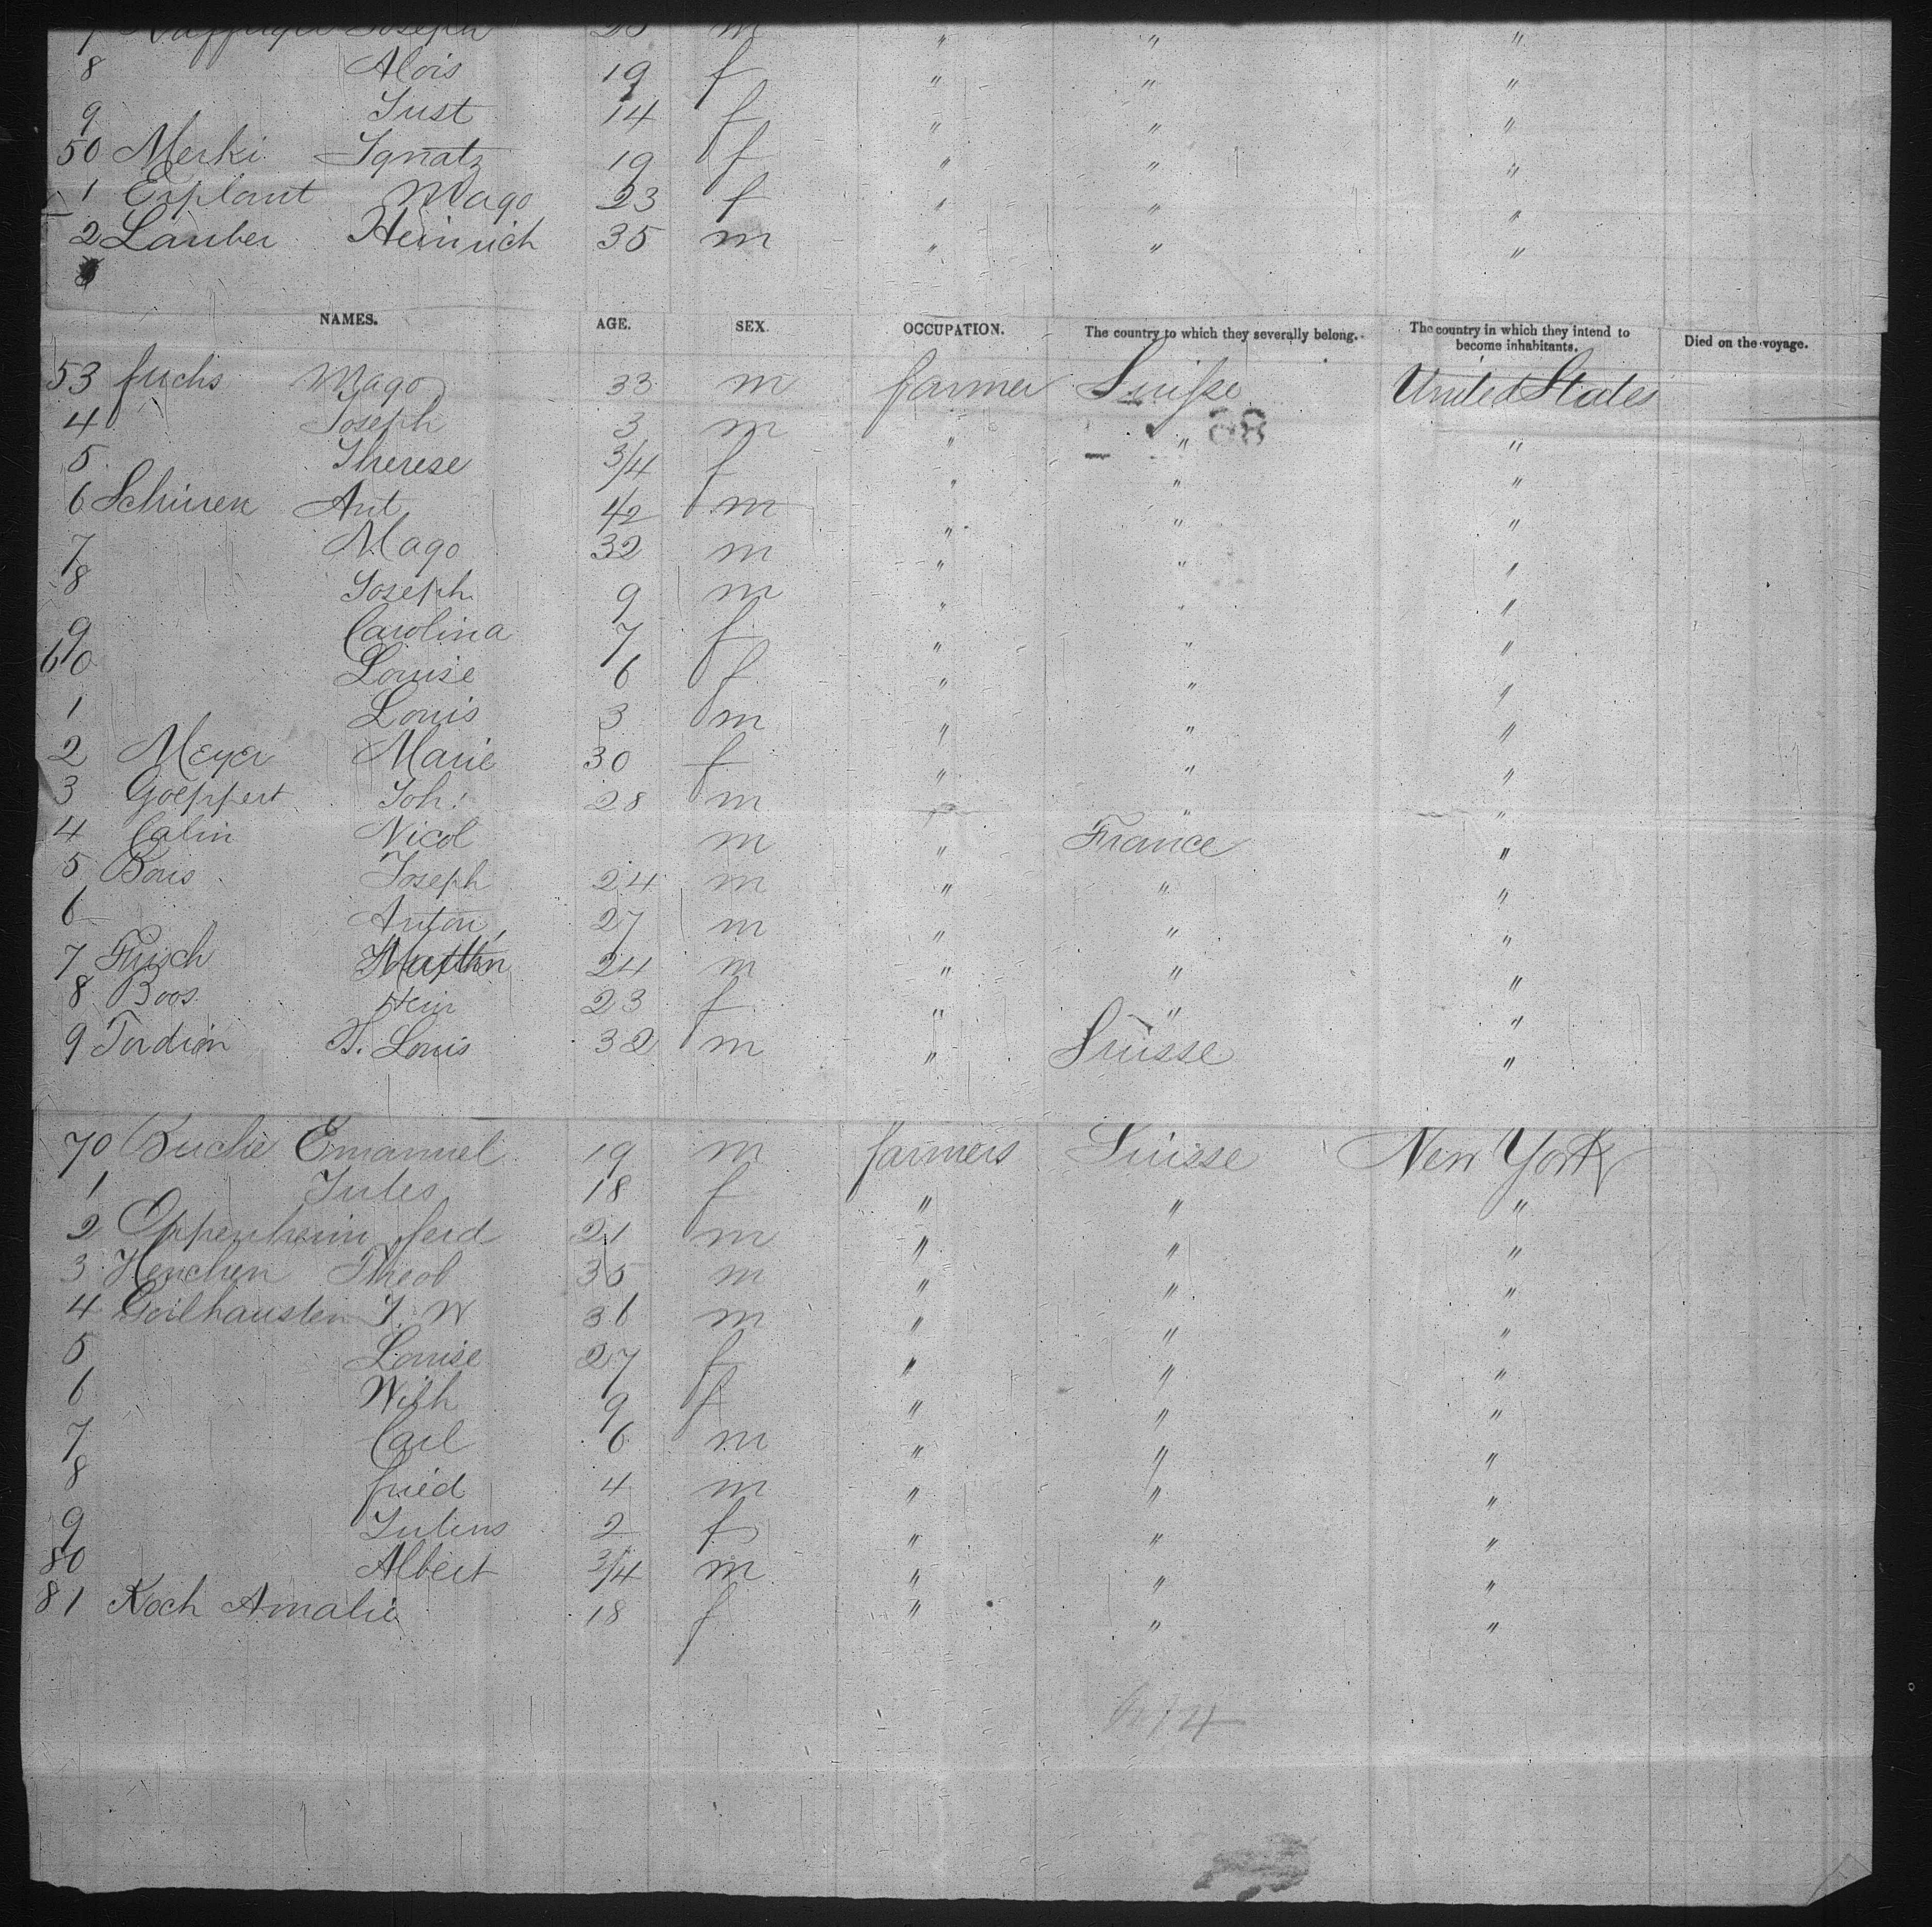 7 Joseph 25 m " " "
8 Alois 19 f " " "
9 Just 14 f " " "
50 Merki Ignatz 19 f " " "
1 Explant Mago 23 f " " "
2 Lauber Heinrich 35 m " " "
NAMES. AGE. SEX. OCCUPATION. The country to which they severally belong. The country in which they intend to become inhabitants. Died on the voyage.
53 fuchs Mago 33 m farmer Suisse United States
4 Joseph 3 m " " "
5 Therese 3/4 f " " "
6 Schirren Ant 42 m " " "
7 Mago 32 m " " "
8 Joseph 9 m " " "
9 Carolina 7 f " " "
60 Louise 6 f " " "
1 Louis 3 m " " "
2 Meyer Marie 30 f " " "
3 Goeppert Joh. 28 m " "
4 Calin Nicol m " France "
5 Bous Joseph 24 m " " "
6 Anton 27 m " " "
7 Frisch 24 m " " "
8 Boos Hein 23 f " " "
9 Tordion J. Louis 32 m " Suisse "
70 Buche Emanuel 19 m farmers Suisse New York
1 Jules 18 f " " "
2 Oppenheim ferd 21 m " " "
3 Henchen Theob 35 m " " "
4 Geilhausten J. W 36 m " " "
5 Louise 27 f " " "
6 Wilh 9 f " " "
7 Carl 6 m " " "
8 fried 4 m " " "
9 Julius 2 f " " "
80 Albert 3/4 m " " "
81 Koch Amalie 18 f " " "